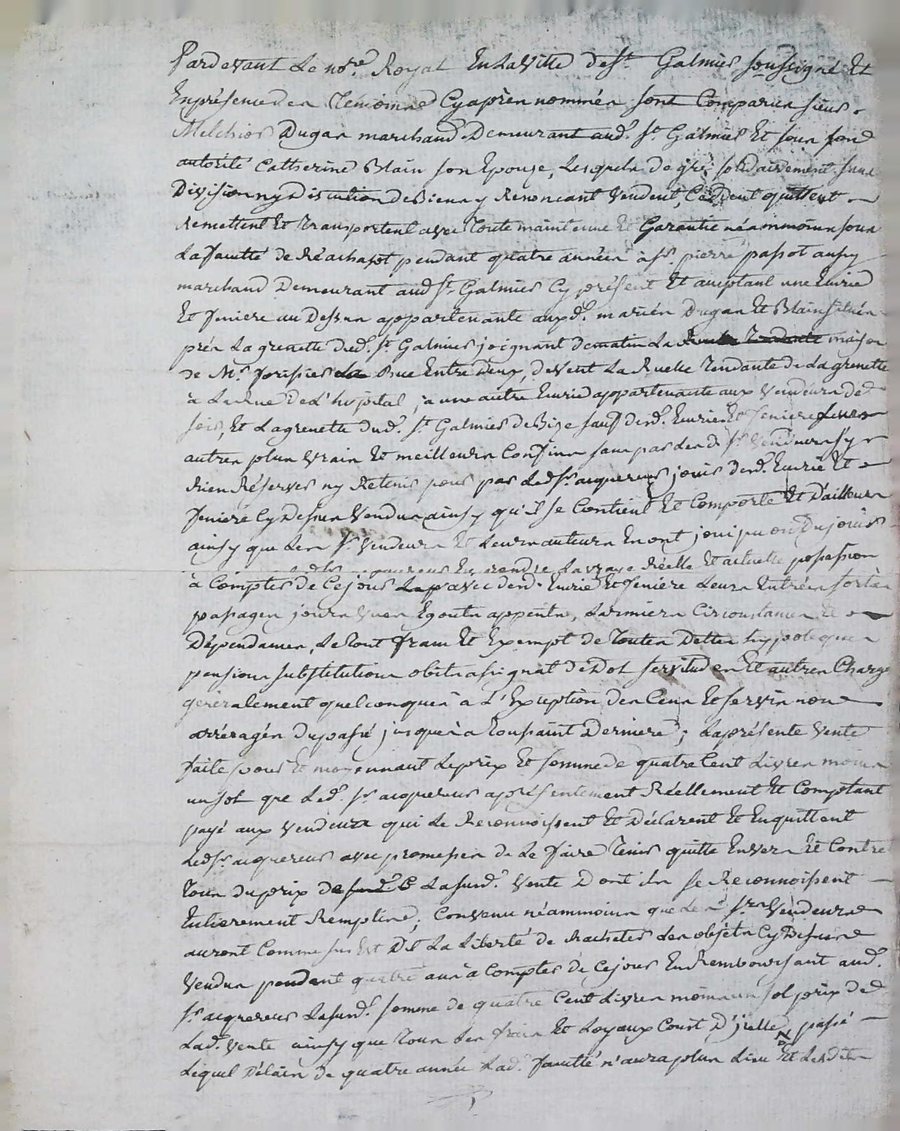 Pardevant Le no.re Royal En La Ville de St. Galmier soussigné Et
En présence des Temoins Cy aprèn nommén sont Comparus sieur
Melchior Dugas marchand Demeurant aud. St. Galmier Et sous son
autorité Catherine Blain son Epouse, Lesquels de gré solidairement sans
Division ny Distution de Biens y Renoncant Vendent, Cèdent quittent
Remettent Et Transportent avec Toute maintenue Et Garantie néammoins sous
La faculté de Réachapt pendant quatre années a Sr. pierre passot aussy
marchand Demeurant aud. St. Galmier Cy présent Et acceptant une Ecurie
Et feniere au Dessus appartenante auxd. mariés Dugas Et Blain Située
près La grenette dud. St. Galmier joignant de matin La maison
de Mr. Rue Entre Deux, de Vent La Ruelle Tendante de La grenette
à La Rue de L'hopital, a une autre Ecurie appartenante aux Vendeurs de
soir, Et La grenette dud. St. Galmier de Bize sauf desd. Ecurie Et feniere Leurs
autres plus Vrais Et meilleurs Confins sans par Lesd. Srs. Vendeurs s'y
Rien Réserver ny Retenir pour par Led. Sr. acquereur jouir desd. Ecurie Et
feniere Cy Dessus Vendus ainsy qu'il se Contient Et Comporte Et D'ailleurs
ainsy que Les Srs. Vendeurs Et Leurs auteurs En ont joui jusqu'aujourd'huy
En prendre La vraye Réelle Et actuelle possession
à Compter de Ce jour avec desd. Ecurie Et feniere Leurs Entrées sorties
passages jours Vues Egouts appentis, Larmiers Circonstances Et
Dépendances, Le Tout franc Et Exempt de Toutes Dettes hypoteques
pensions substitutions obits assignat de Dot servitudes Et autres Charges
généralement quelconques à L'Exception des Cens Et servis non
arréragés du passé jusques à Toussaint Derniere; La présente Vente
faite pour Et moyennant Le prix Et somme de quatre Cent Livres moins
un sol que Led. Sr. acquereur a présentement Réellement Et Comptant
payé aux Vendeurs qui Le Reconnoissent Et Déclarent Et En quittent
Led. Sr. acquereur avec promesse de Le faire Tenir quitte Envers Et Contre
Tous du prix de La susd. Vente Dont ils se Reconnoissent
Entierement Remplis; Convenu néammoins que Les d. Srs. Vendeurs
auront Comme sus Est Dit La Liberté de Racheter Les objets Cy Dessus
Vendus pendant quatre ans à Compter de Ce jour En Remboursant aud.
Sr. acquereur La susd. somme de quatre Cent Livres moins un sol prix de
Lad. Vente ainsy que Tous Les frais Et Loyaux Cout D'jcelle, passé
Lequel Délain de quatre année Lad. faculté n'aura plus Lieu Et Lesdits